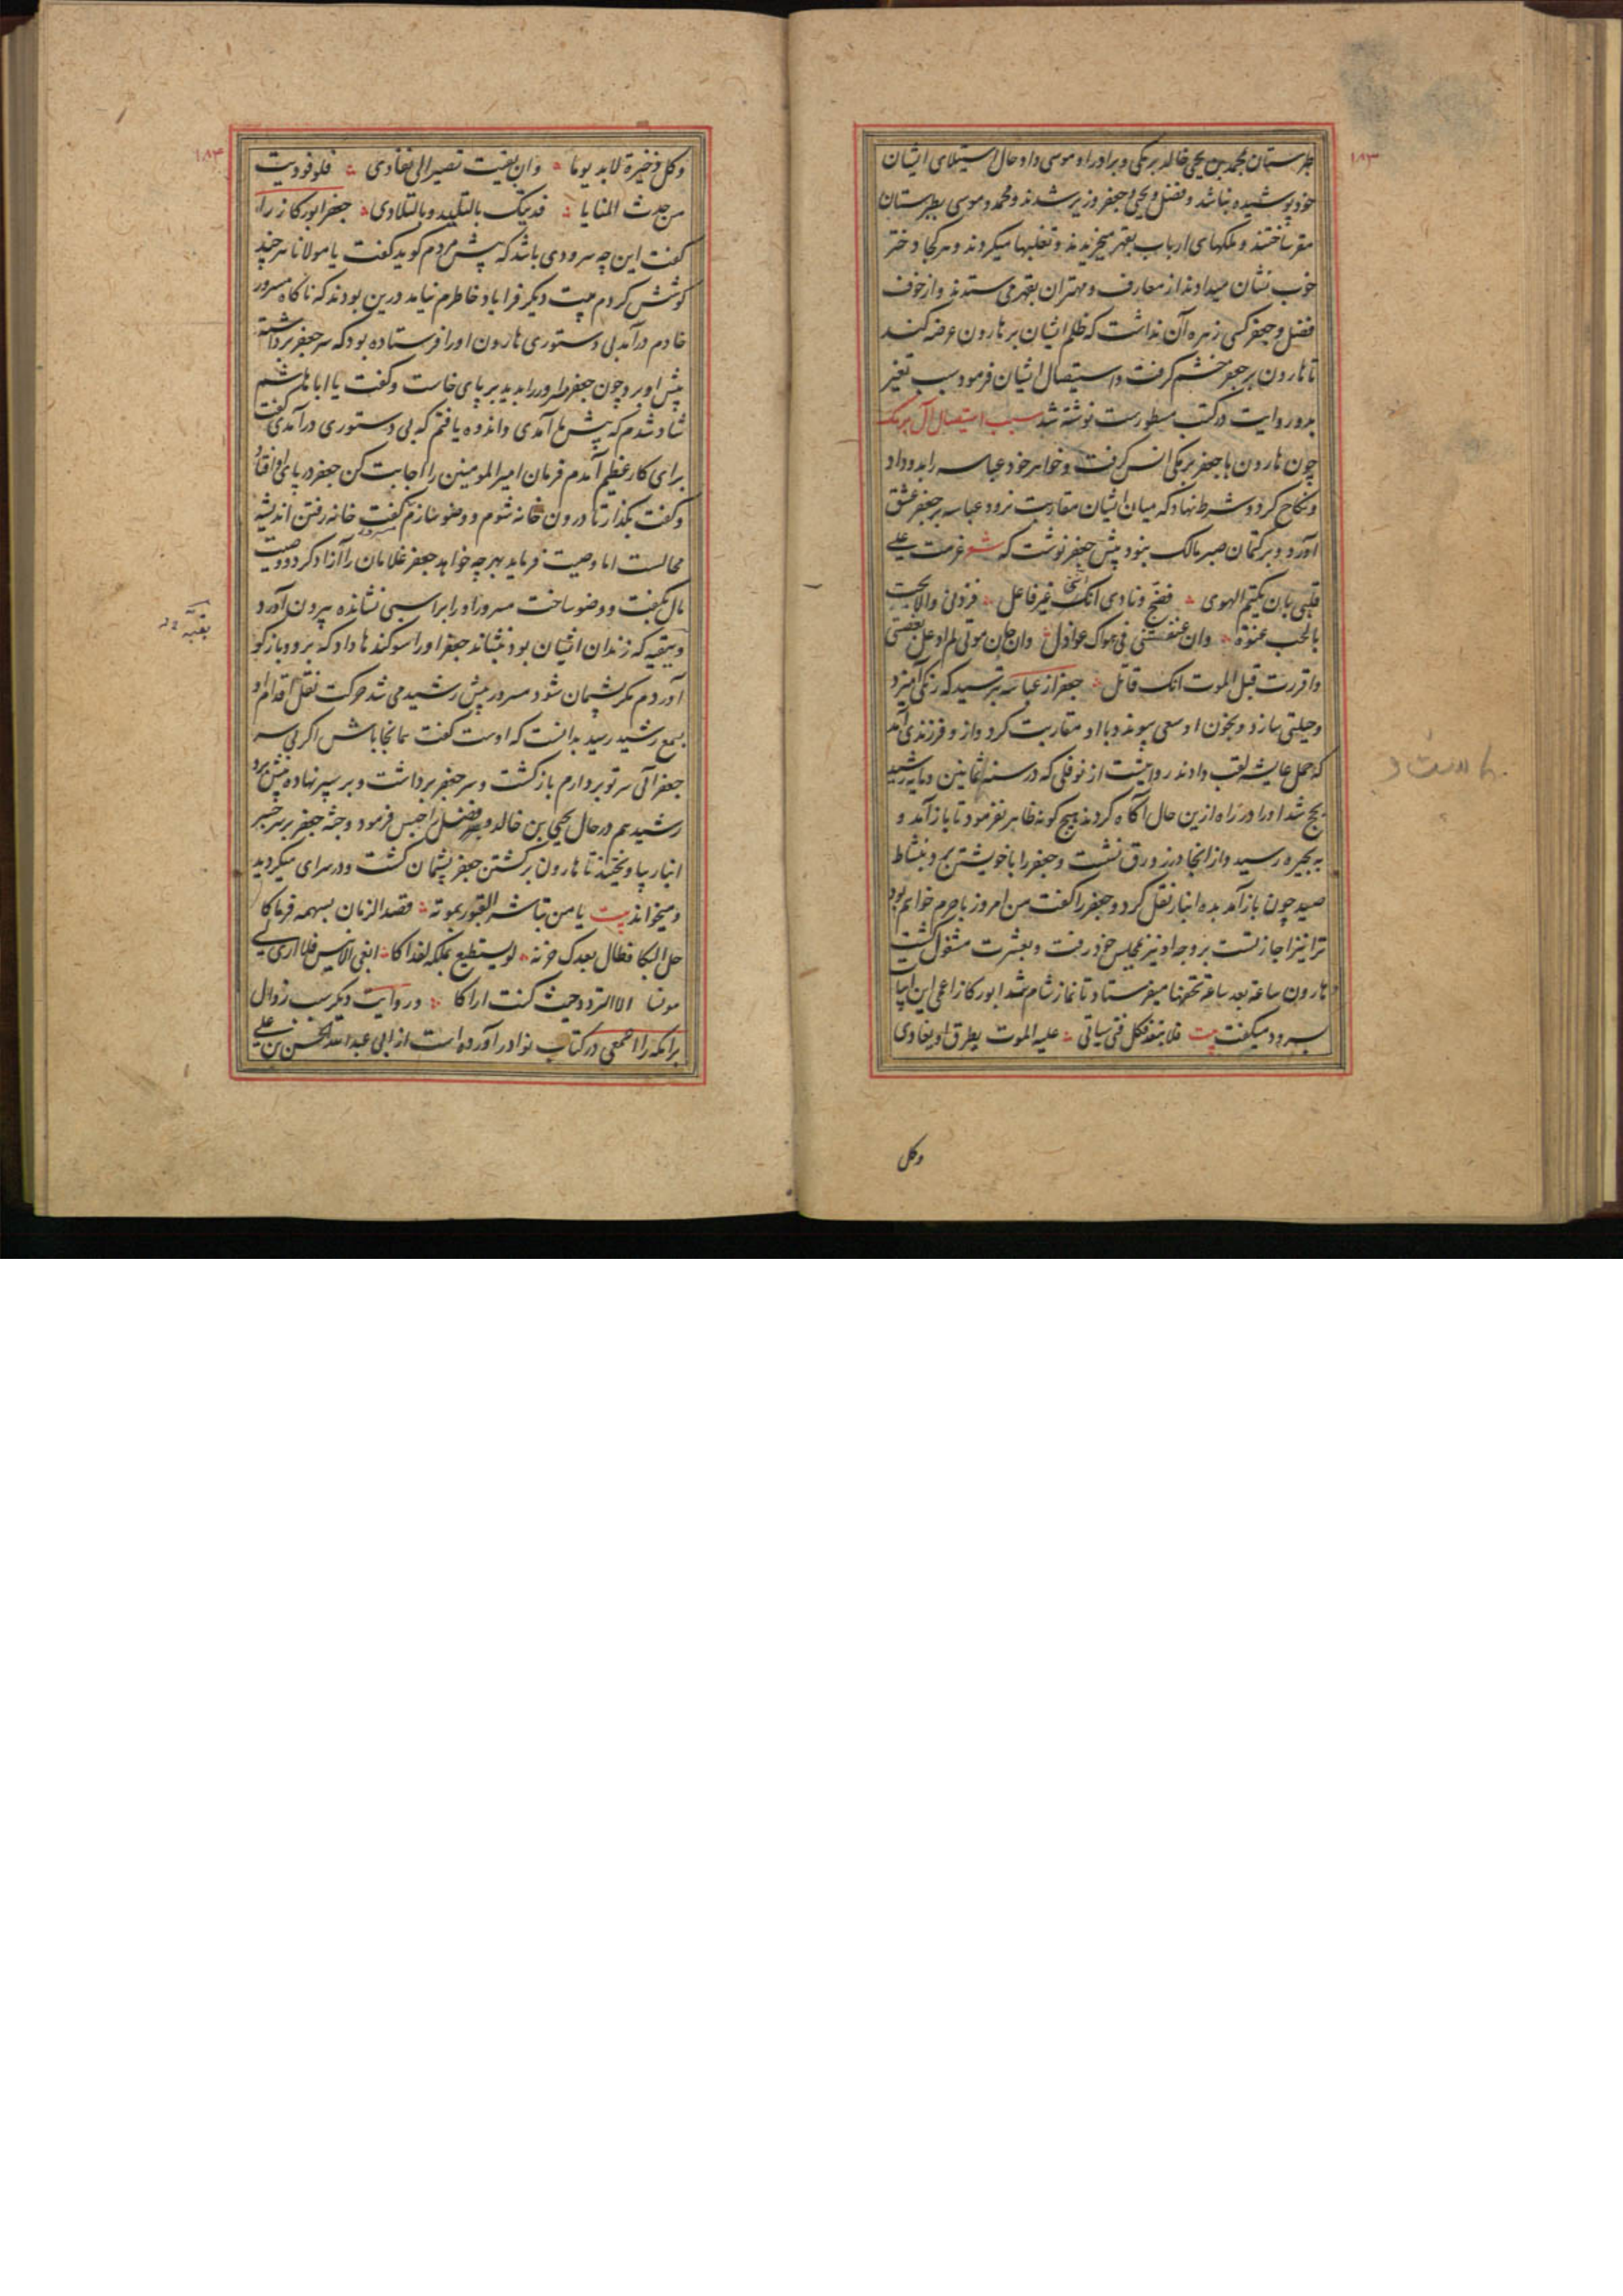 ۱۸۳
طبرستان بمحمد بن یحیی خالد برمکی و برادر او موسی داد و حال استیلای ایشان
خود پوشیده نباشد و فضل و یحیی و جعفر وزیر شدند و محمد و موسی بطبرستان
مقر ساختند و ملکهای ارباب بقهر میخریدند و تغلبها میکردند و هر کجا دختر
خوب نشان میدادند از معارف و مهتران بقهر می ستدند و از خوف
فضل و جعفر کسی زهره آن نداشت که ظلم ایشان بر هارون عرضه کند
تا هارون بر جعفر خشم گرفت و استیصال ایشان فرمود سبب تغیر
بدو روایت در کتب مسطورست نوشته شد سبب استیصال آل برمک
چون هارون با جعفر برمکی انس گرفت و خواهر خود عباسه را بدو داد
و نکاح کرد و شرط نهاد که میان ایشان مقاربت نرود عباسه بر جعفر عشق
آورد و بر کتمان صبر مالک نبود پیش جعفر نوشت که شعر عزمت علی
قلبی بان یکتم الهوی فضج و نادی انک غیر فاعل فزرنی والا بحت
بالحب عنوة وان عنفتنی فی هواک عواذل وان حان موتی لم ادعک بغصتی
واقررت قبل الموت انک قاتل جعفر از عباسه بترسید که رنگی آمیزد
و حیلتی سازد و بخون او سعی پیوندد با او مقاربت کرد و از و فرزندی آمد
که حمل عایشه لقب دادند روایتست از نوفلی که در سنه ثمانین و مایه رشید
بحج شد او را در راه ازین حال آگاه کردند هیچ گونه ظاهر نفرمود تا باز آمد و
به بحیره رسید و از انجا در زورق نشست و جعفر را با خویشتن برد و بنشاط
صید چون باز آمد بده انبار نقل کرد و جعفر را گفت من امروز با حرم خواهم بود
ترا نیز اجازتست برو جه او نیز بمجلس خود رفت و بعشرت مشغول گشت
هارون ساعة بعد ساعة تحفها میفرستاد تا نماز شام شد ابو رکاز اعمی این ابیات
بسرود میگفت بیت فلا تبعد فکل فتی سیاتی علیه الموت یطرق او یغادی
وکل
۱۸۳
وکل ذخیرة لابد یوما وان بقیت تصیر الی نفادی فلو فودیت
من حدث المنایا فدیتک بالتلید و بالتلادی جعفر ابو رکاز را
گفت این چه سرودی باشد که پیش مردم گوید گفت یا مولانا هر چند
کوشش کردم بیت دیگر فرا یاد خاطرم نیامد درین بودند که ناگاه مسرور
خادم درآمد بی دستوری هارون او را فرستاده بود که سر جعفر برداشته
پیش او برد چون جعفر مسرور را بدید بر پای خاست و گفت یا ابا هاشم
شاد شدم که پیش ما آمدی و اندوه یافتم که بی دستوری درآمدی گفت
برای کار عظیم آمدم فرمان امیر المومنین را اجابت کن جعفر در پای او افتاد
و گفت بگذار تا درون خانه شوم و وضو سازم مسرور گفت خانه رفتن اندیشه
محالست اما وصیت فرماید بهر چه خواهد جعفر غلامان را آزاد کرد و وصیت
مال بگفت و وضو ساخت مسرور او را بر اسبی نشانده بیرون آورد
و بقیه که زندان ایشان بود بنشاند جعفر او را سوگندها داد که برو و باز گو
آوردم مگر پشیمان شود مسرور پیش رشید می شد حرکت نقل اقدام او
بسمع رشید رسید بدانست که اوست گفت بمانجا باش اگر بی سر
جعفر آئی سر تو بردارم باز گشت و سر جعفر برداشت و بر سپر نهاده پیش برد
رشید هم در حال یحیی بن خالد و فضل را حبس فرمود و جثه جعفر بر سر جسر
انبار بیاویختند تا هارون بر گشتن جعفر پشیمان گشت و در سرای میگردید
و میخواند بیت یا من تباشر القبور بموته قصد الزمان بسهمه فرماکا
حل البکا فطال بعدک حزنه لو یستطیع بملکه لفداکا ابغی الانیس فلا اری لی
مونسا الا التردد حیث کنت اراکا و روایت دیگر سبب زوال
برامکه را اصمعی در کتاب نوادر آورده است از ابی عبد الله الحسن بن علی
بقیه